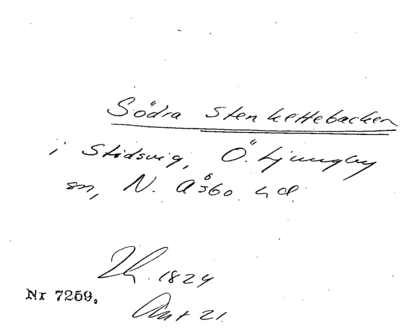 Södra Stenkettebacken
i Stidsvig, Ö. Ljungby
sn, N. Åsbo hd.
1824
Nr 7259.
21.